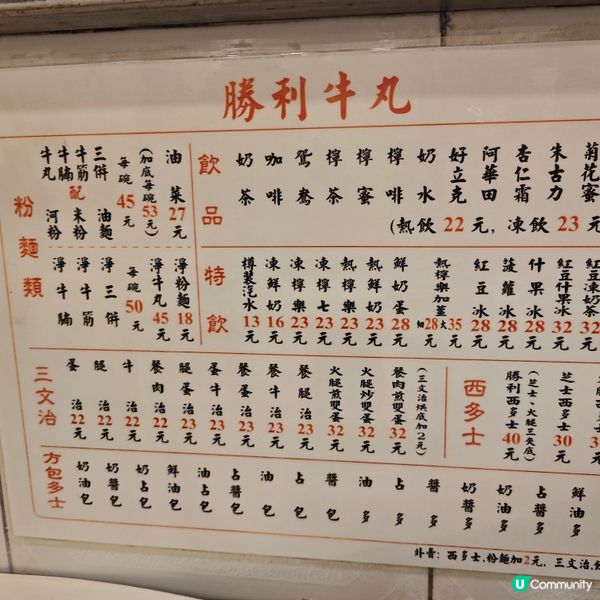 勝利牛丸
粉麵類
牛丸
牛腩
牛筋
三併
配
河粉
米粉
油麵
每碗45元
(加底每碗53元)
油菜27元
淨牛腩
淨牛筋
淨三併
每碗50元
淨牛丸45元
淨粉麵18元
飲品
奶茶
咖啡
鴛鴦
檸茶
檸蜜
檸啡
奶水
好立克
阿華田
杏仁霜
朱古力
菊花蜜
(熱飲22元,凍飲23元
特飲
樽裝汽水13元
凍鮮奶16元
凍檸樂23元
凍檸七23元
熱檸樂23元
熱鮮奶23元
鮮奶蛋28元
熱檸樂加薑
細28元
大35元
紅豆冰28元
菠蘿冰28元
什果冰28元
紅豆什果冰32元
紅豆凍奶茶32元
三文治
蛋治22元
腿治22元
牛治22元
餐肉治22元
腿蛋治23元
蛋牛治23元
餐蛋治23元
餐牛治23元
餐腿治23元
火腿煎雙蛋32元
火腿炒雙蛋32元
餐肉煎雙蛋32元
(三文治烘底加2元)
西多士
勝利西多士40元
(芝士、火腿三夾底)
芝士西多士30元
方包多士
奶油包
奶醬包
奶占包
鮮油包
油占包
占醬包
油包
占包
醬包
油多
占多
醬多
奶醬多
奶油多
占醬多
鮮油多
外賣:西多士、粉麵加2元,三文治、
U Community